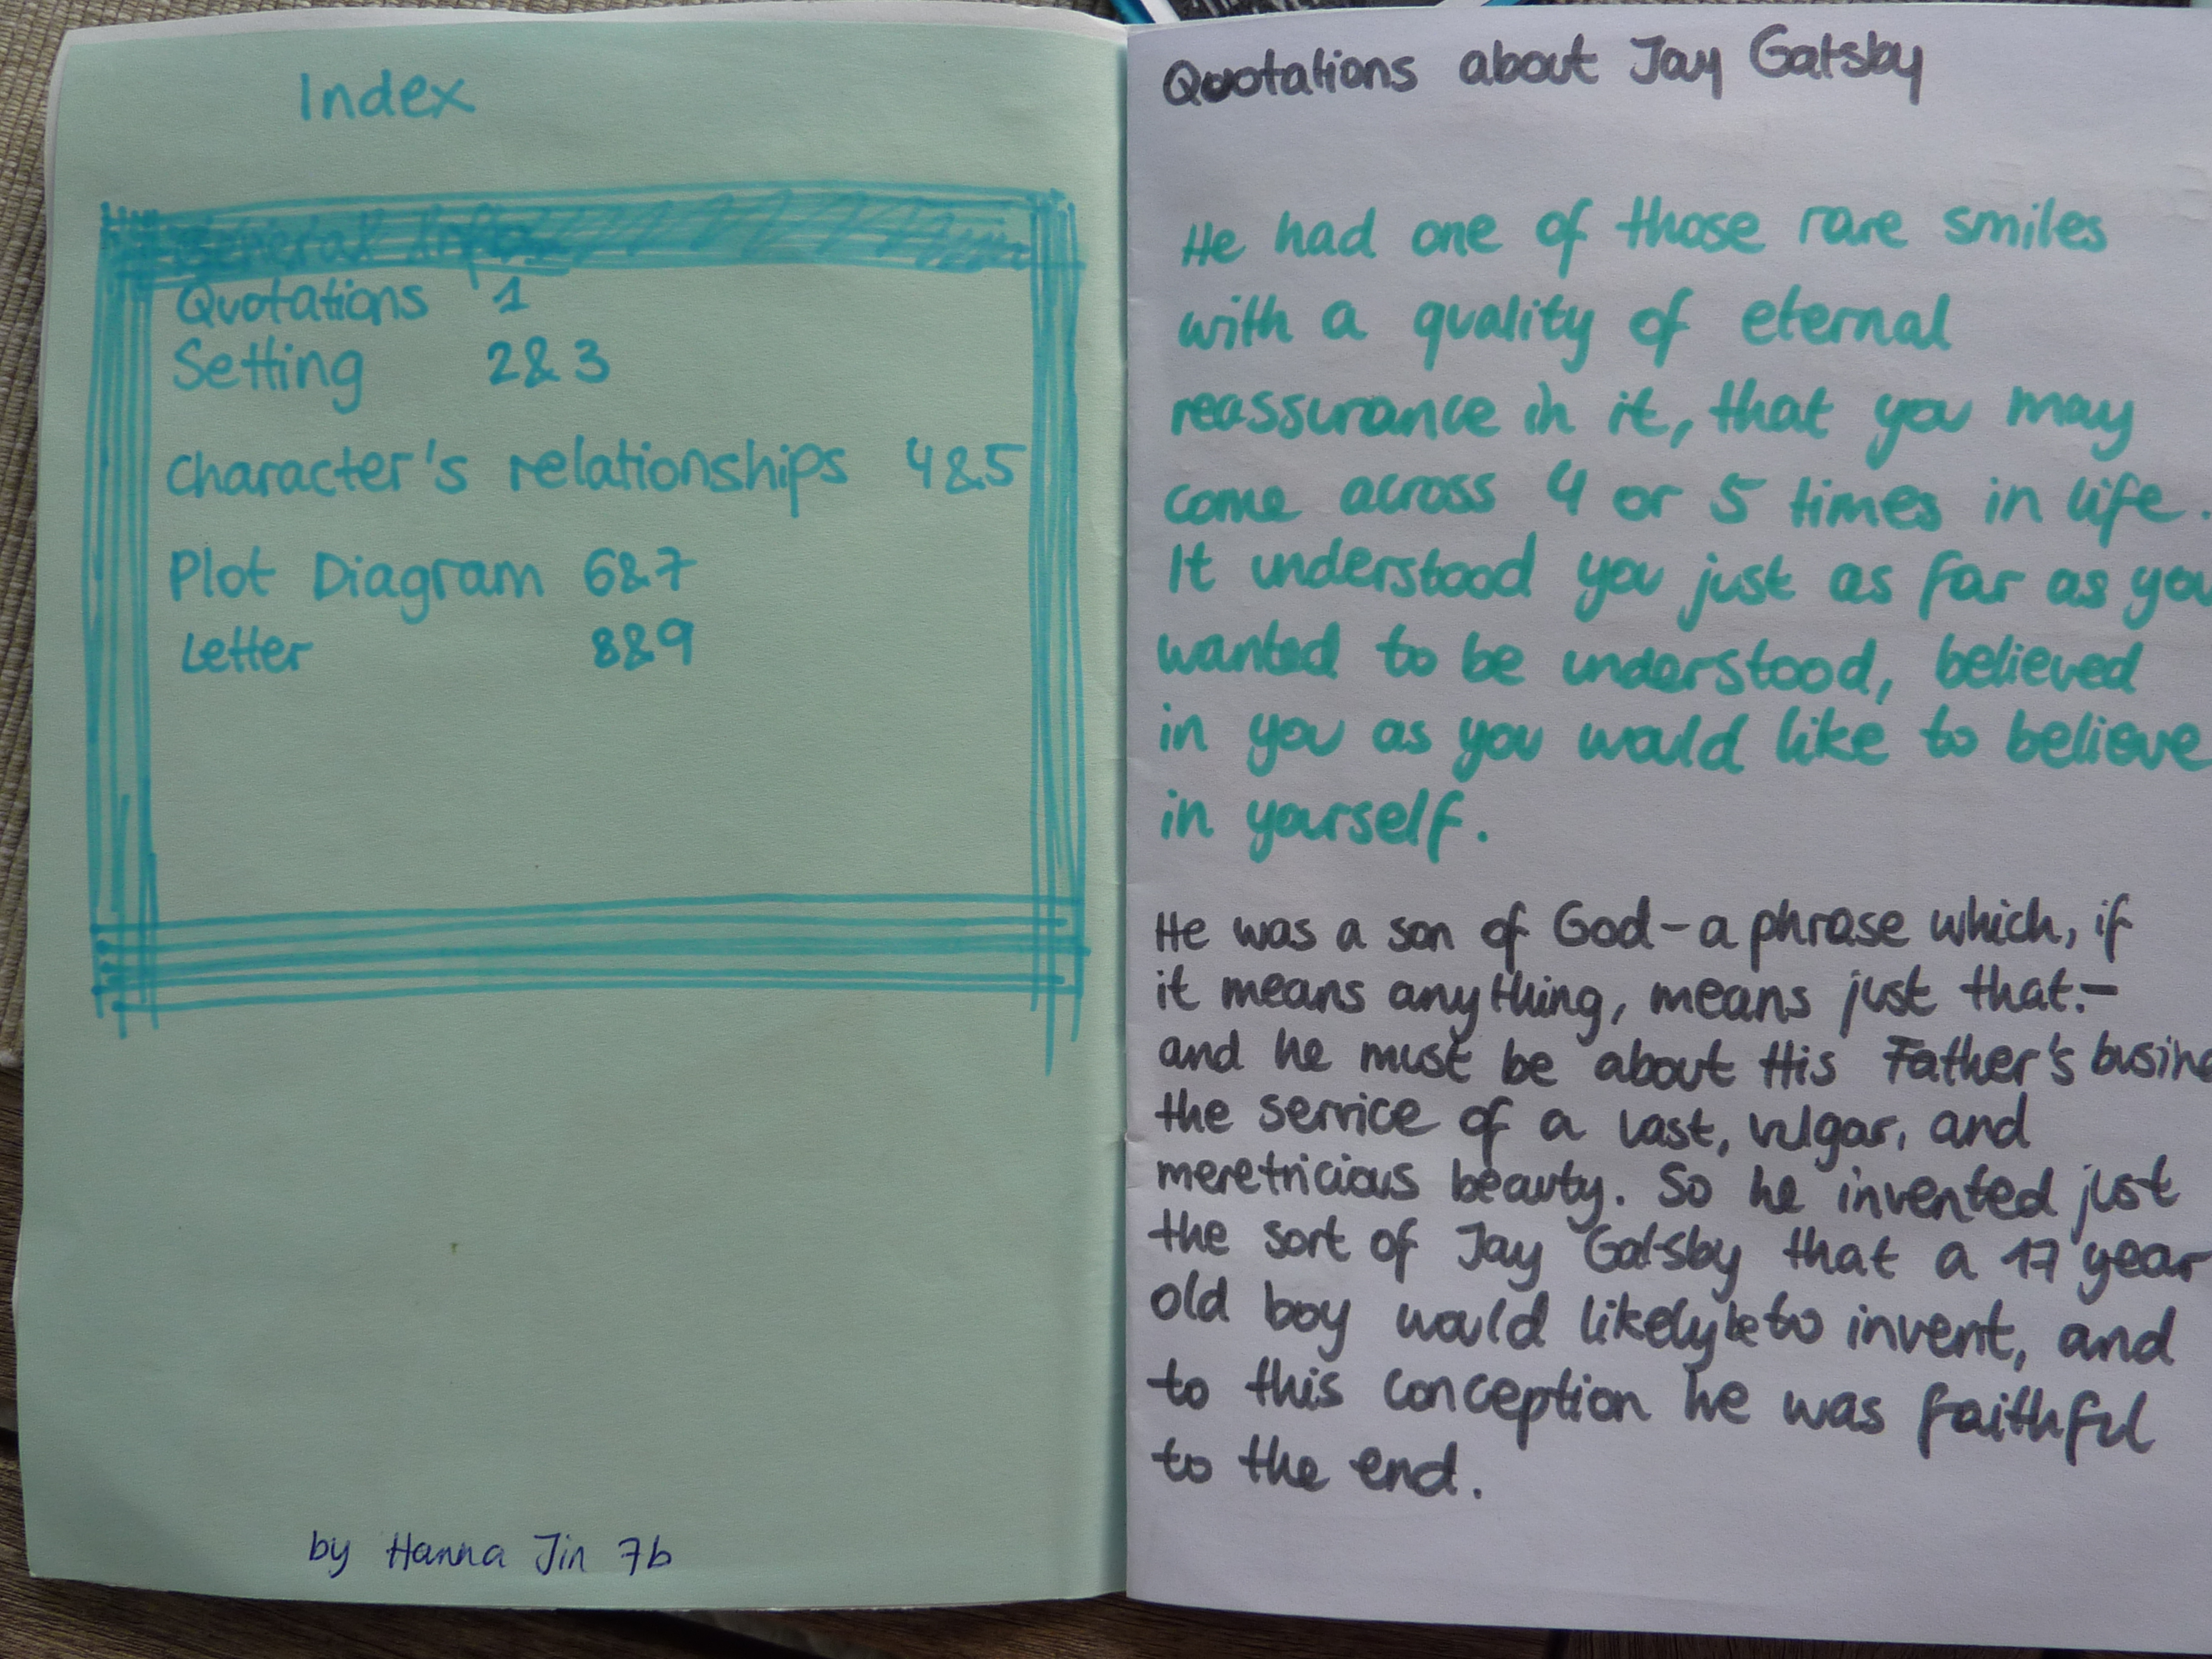 Index
General Info
Quotations 1
Setting 2&3
Character's relationships 4&5
Plot Diagram 6&7
Letter 8&9
by Hanna Jin 7b
Quotations about Jay Gatsby
He had one of those rare smiles
with a quality of eternal
reassurance in it, that you may
come across 4 or 5 times in life.
It understood you just as far as you
wanted to be understood, believed
in you as you would like to believe
in yourself.
He was a son of God-a phrase which, if
it means anything, means just that.-
and he must be about His Father's
the service of a vast, vulgar, and
meretricious beauty. So he invented just
the sort of Jay Gatsby that a 17 year
old boy would likely be to invent, and
to this conception he was faithful
to the end.